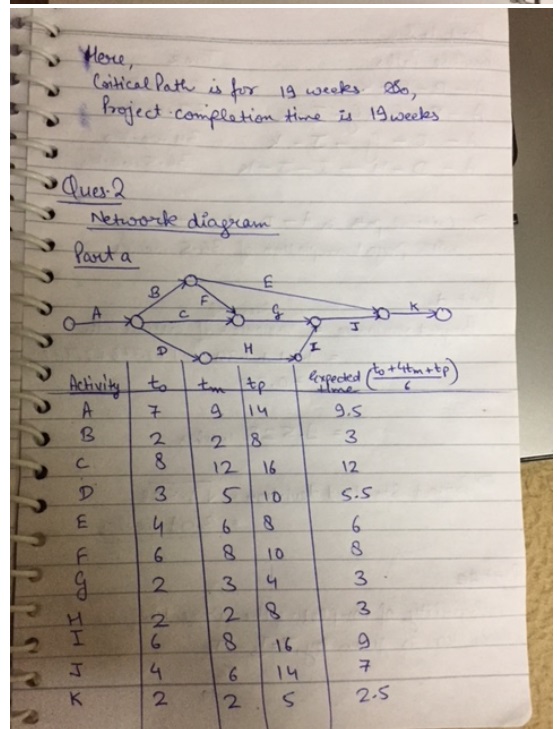 Here,
Critical Path is for 19 weeks. So,
Project completion time is 19 weeks
Ques.2
Network diagram
Part a
A B C D E F G H I J K
Activity to tm tp Expected time (to+4tm+tp / 6)
A 7 9 14 9.5
B 2 2 8 3
C 8 12 16 12
D 3 5 10 5.5
E 4 6 8 6
F 6 8 10 8
G 2 3 4 3
H 2 2 8 3
I 6 8 16 9
J 4 6 14 7
K 2 2 5 2.5